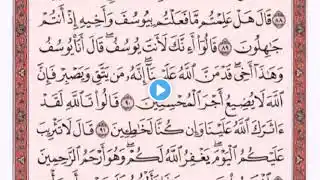 ٨٨ قَالَ هَلْ عَلِمْتُم مَّا فَعَلْتُم بِيُوسُفَ وَأَخِيهِ إِذْ أَنتُمْ
جَٰهِلُونَ ٨٩ قَالُوٓا۟ أَءِنَّكَ لَأَنتَ يُوسُفُ قَالَ أَنَا۠ يُوسُفُ
وَهَٰذَآ أَخِى قَدْ مَنَّ ٱللَّهُ عَلَيْنَآ إِنَّهُۥ مَن يَتَّقِ وَيَصْبِرْ فَإِنَّ
ٱللَّهَ لَا يُضِيعُ أَجْرَ ٱلْمُحْسِنِينَ ٩٠ قَالُوا۟ تَٱللَّهِ لَقَدْ
ءَاثَرَكَ ٱللَّهُ عَلَيْنَا وَإِن كُنَّا لَخَٰطِـِٔينَ ٩١ قَالَ لَا تَثْرِيبَ
عَلَيْكُمُ ٱلْيَوْمَ يَغْفِرُ ٱللَّهُ لَكُمْ وَهُوَ أَرْحَمُ ٱلرَّٰحِمِينَ